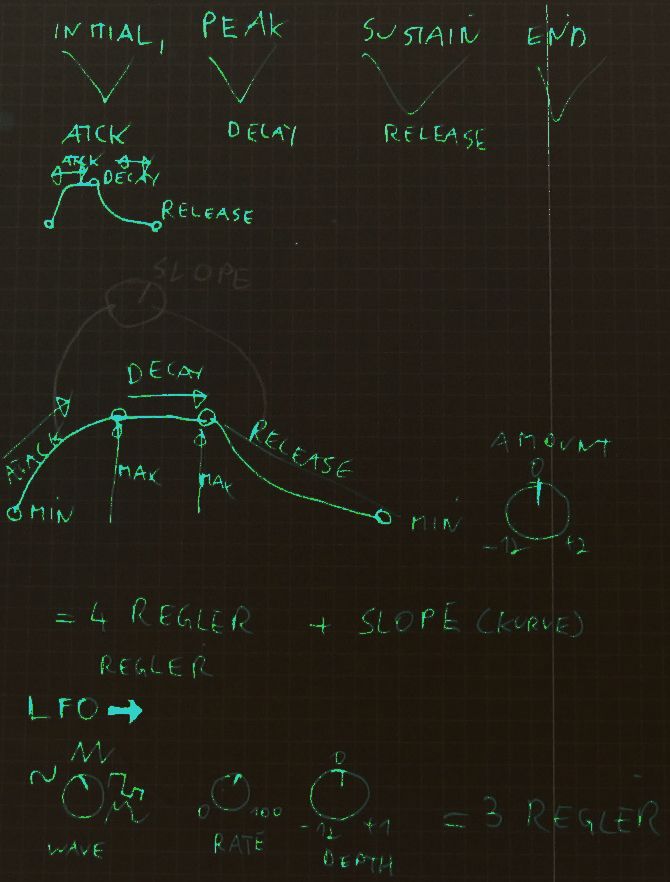 INITIAL, PEAK SUSTAIN END
ATCK DECAY RELEASE
ATCK
DECAY
RELEASE
SLOPE
DECAY
ATACK
RELEASE
MAX
MAX
MIN
MIN
AMOUNT
0
-12
+2
= 4 REGLER + SLOPE (KURVE)
REGLER
LFO
WAVE
0 100
RATE
0
-12 +1
DEPTH
= 3 REGLER